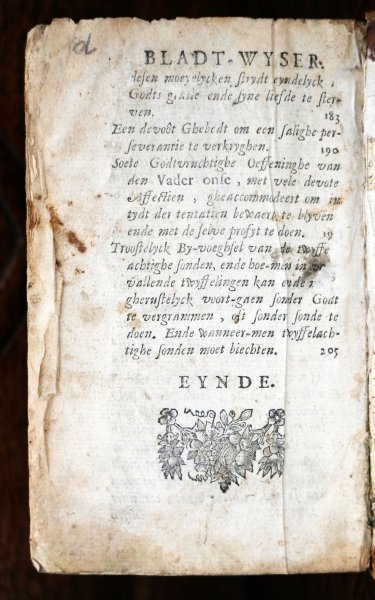 BLADT-WYSER.
desen moeyelycken strydt eyndelyck,
Godts gratie ende syne liefde te ster-
ven. 183
Een devoot Ghebedt om een salighe per-
severantie te verkryghen. 190
Soete Godtvruchtighe Oeffeninghe van
den Vader onse, met vele devote
Affectien, gheaccommodeert om in
tydt der tentatien bewaert te blyven
ende met de selve profyt te doen. 19
Troostelyck By-voeghsel van de twyffe
achtighe sonden, ende hoe-men in
vallende twyffelingen kan ende
gherustelyck voort-gaen sonder Godt
te vergrammen, oft sonder sonde te
doen. Ende wanneer-men twyffelach-
tighe sonden moet biechten. 205
EYNDE.